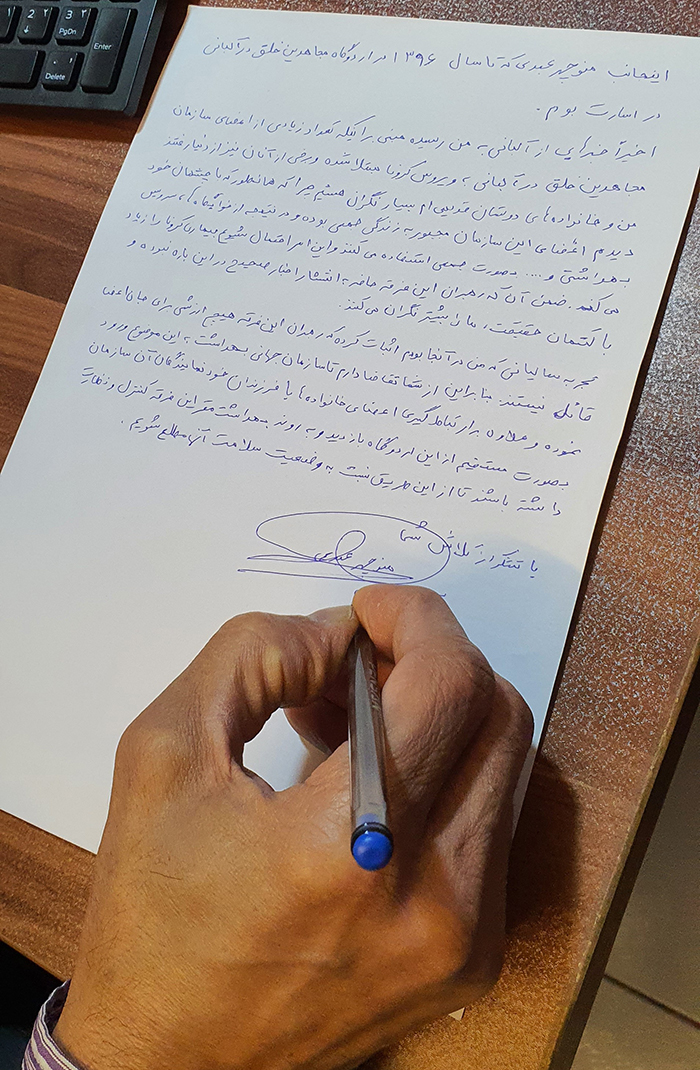 2 ۲
↓
3 ۳
PgDn
Enter
Delete
اینجانب منوچهر عبدی که تا سال ۱۳۹۶ در اردوگاه مجاهدین خلق در آلبانی
در اسارت بودم .
اخیراً خبرهایی از آلبانی به من رسیده مبنی بر اینکه تعداد زیادی از اعضای سازمان
مجاهدین خلق در آلبانی به ویروس کرونا مبتلا شده و برخی از آنان نیز از دنیا رفتند
من و خانواده های دوستان قدیمی ام بسیار نگران هستیم چرا که همانطور که با چشمان خود
دیدم اعضای این سازمان مجبور به زندگی جمعی بوده و در نتیجه از خوابگاه ها ، سرویس
بهداشتی و .... بصورت جمعی استفاده می کنند و این امر احتمال شیوع بیماری کرونا را زیاد
می کند . ضمن آن که رهبران این فرقه حاضر به انتشار اخبار صحیح در این باره نبوده و
با کتمان حقیقت ، ما را بیشتر نگران می کنند .
تجربه سالیانی که من در آنجا بودم اثبات کرده که رهبران این فرقه هیچ ارزشی برای جان اعضا
قائل نیستند . بنابراین از شما تقاضا دارم تا سازمان جهانی بهداشت به این موضوع ورود
نموده و علاوه بر ارتباط گیری اعضای خانواده ها با فرزندان خود نمایندگان آن سازمان
بصورت مستقیم از این اردوگاه بازدید و به روند بهداشت مقر این فرقه کنترل و نظارت
داشته باشند تا از این طریق نسبت به وضعیت سلامت آنها مطلع شویم .
با تشکر از تلاش شما
منوچهر عبدی